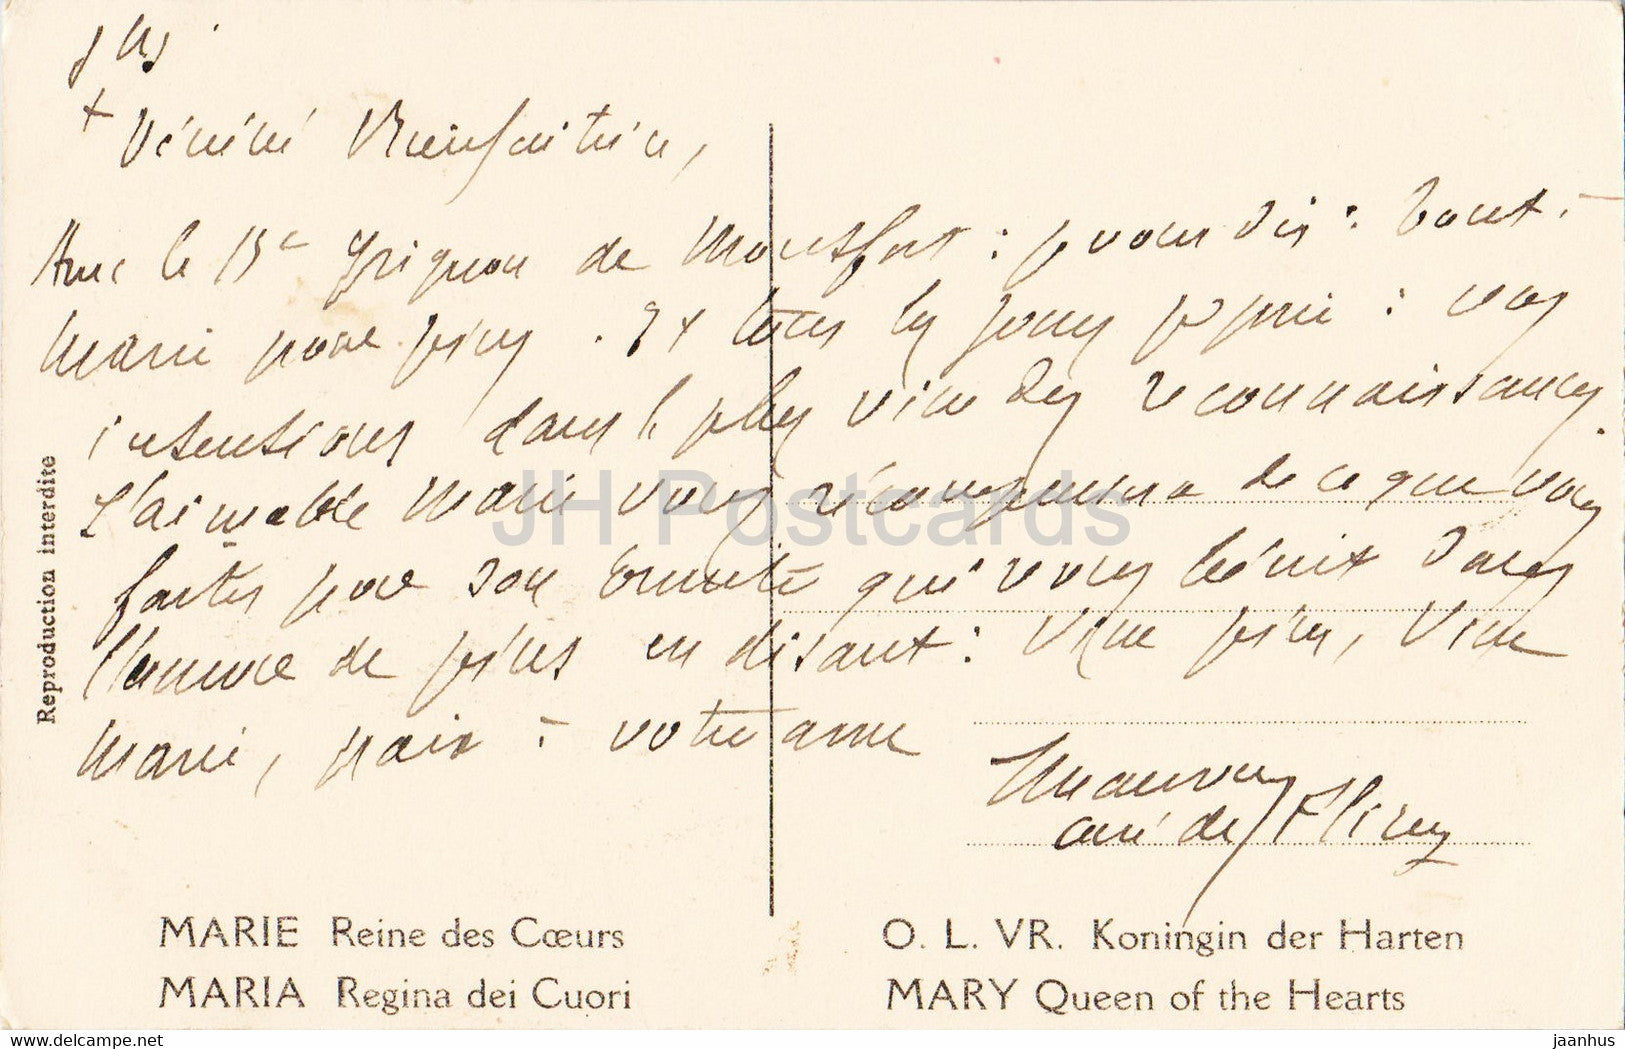 JHS
+ Vénéré Bienfaitrice,
Avec le Bx Grignon de Montfort : je vous dis : tout à
Marie pour Jésus. Et tous les jours je prie : vos
intentions dans la plus vive des reconnaissances.
L'aimable Marie vous récompensera de ce que vous
faites pour son qui vous bénit dans
l'amour de Jésus en disant : Vive Jésus, Vive
Marie, paix à votre âme
curé de Flirey
Reproduction interdite
MARIE Reine des Cœurs
MARIA Regina dei Cuori
O. L. VR. Koningin der Harten
MARY Queen of the Hearts
JH Postcards
hippostcard.com
jaanhus